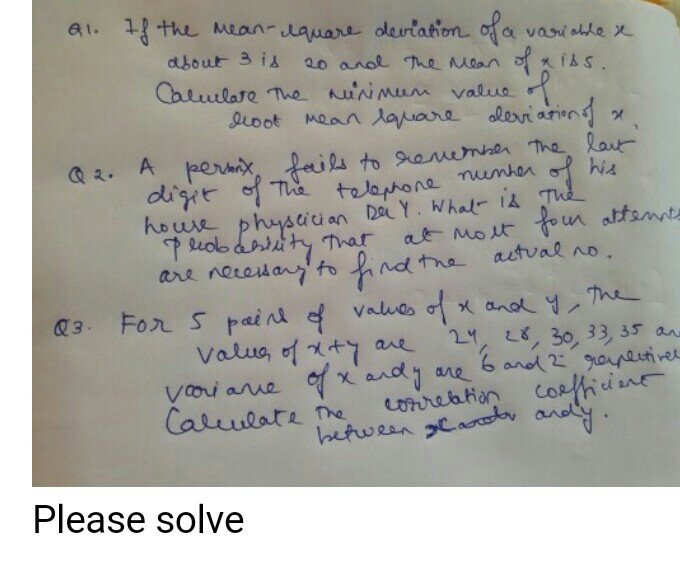 Q1. If the mean-square deviation of a variable x
about 3 is 20 and the mean of x is 5.
Calculate the minimum value of
root mean square deviation of x.
Q2. A person X fails to remember the last
digit of the telephone number of his
house physcician Dr Y. What is the
probability that at most four attempts
are necessary to find the actual no.
Q3. For 5 pairs of values of x and y, the
values of x+y are 24, 28, 30, 33, 35 an
variance of x and y are 6 and 2 respectivel
Calculate the correlation coefficient
between x and y.
Please solve